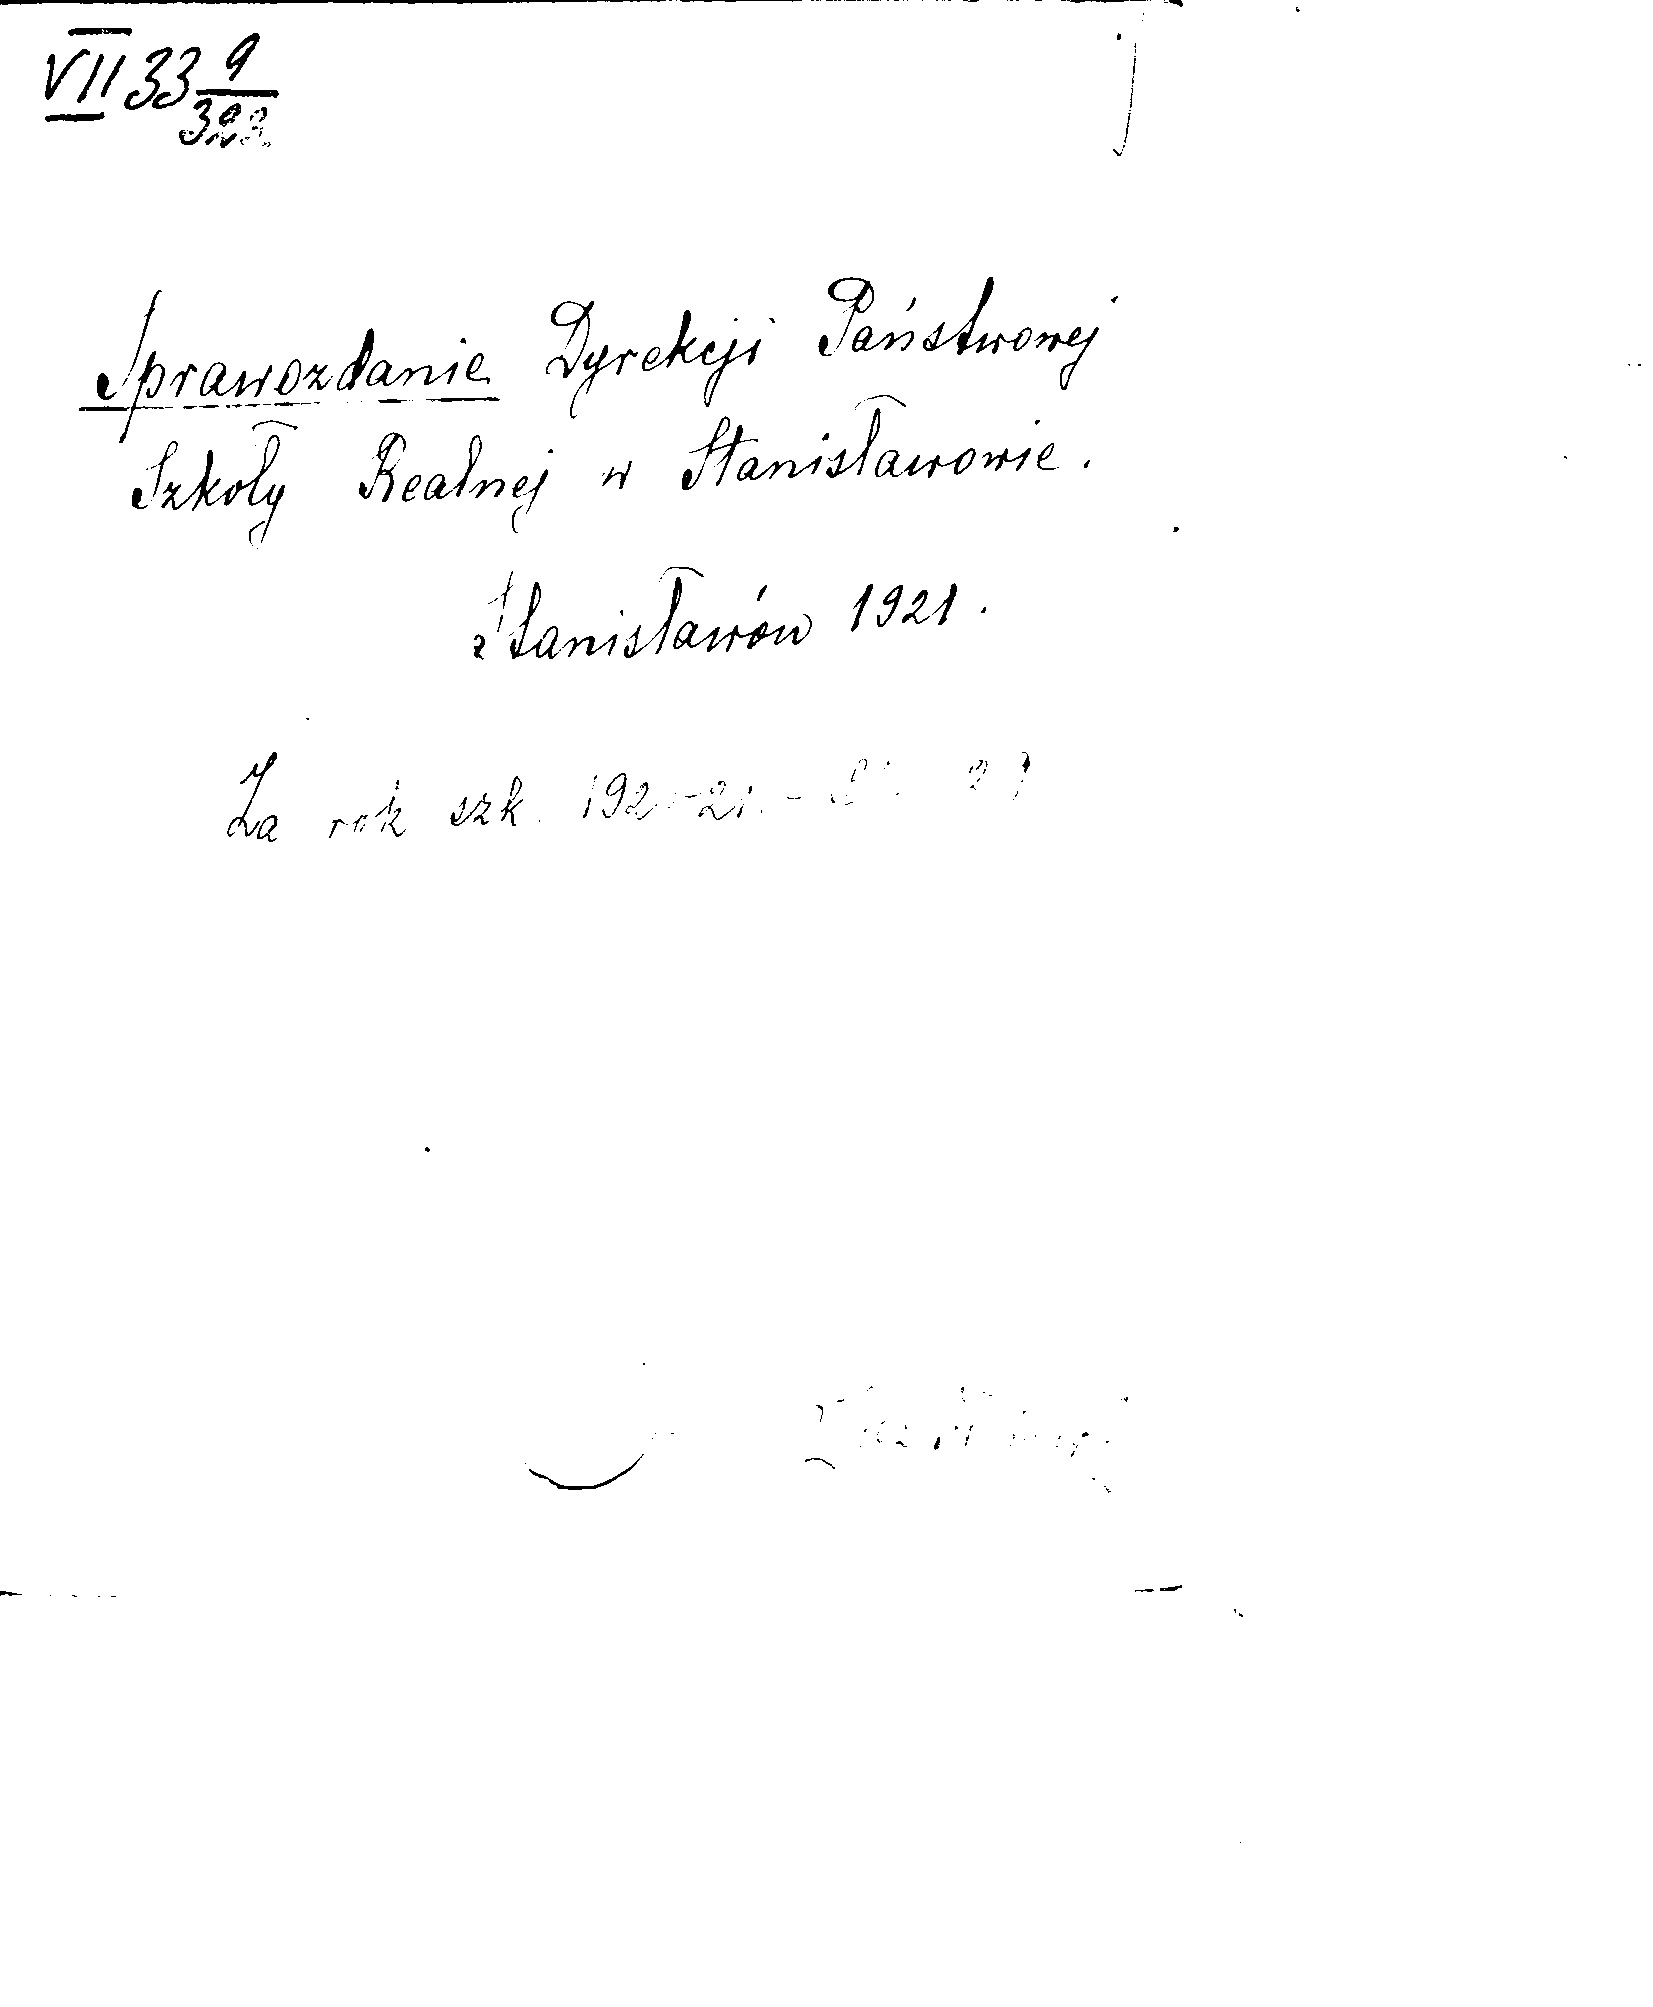 VII 33 9/322
Sprawozdanie Dyrekcji Państwowej
Szkoły Realnej w Stanisławowie.
Stanisławów 1921.
Za rok szk.